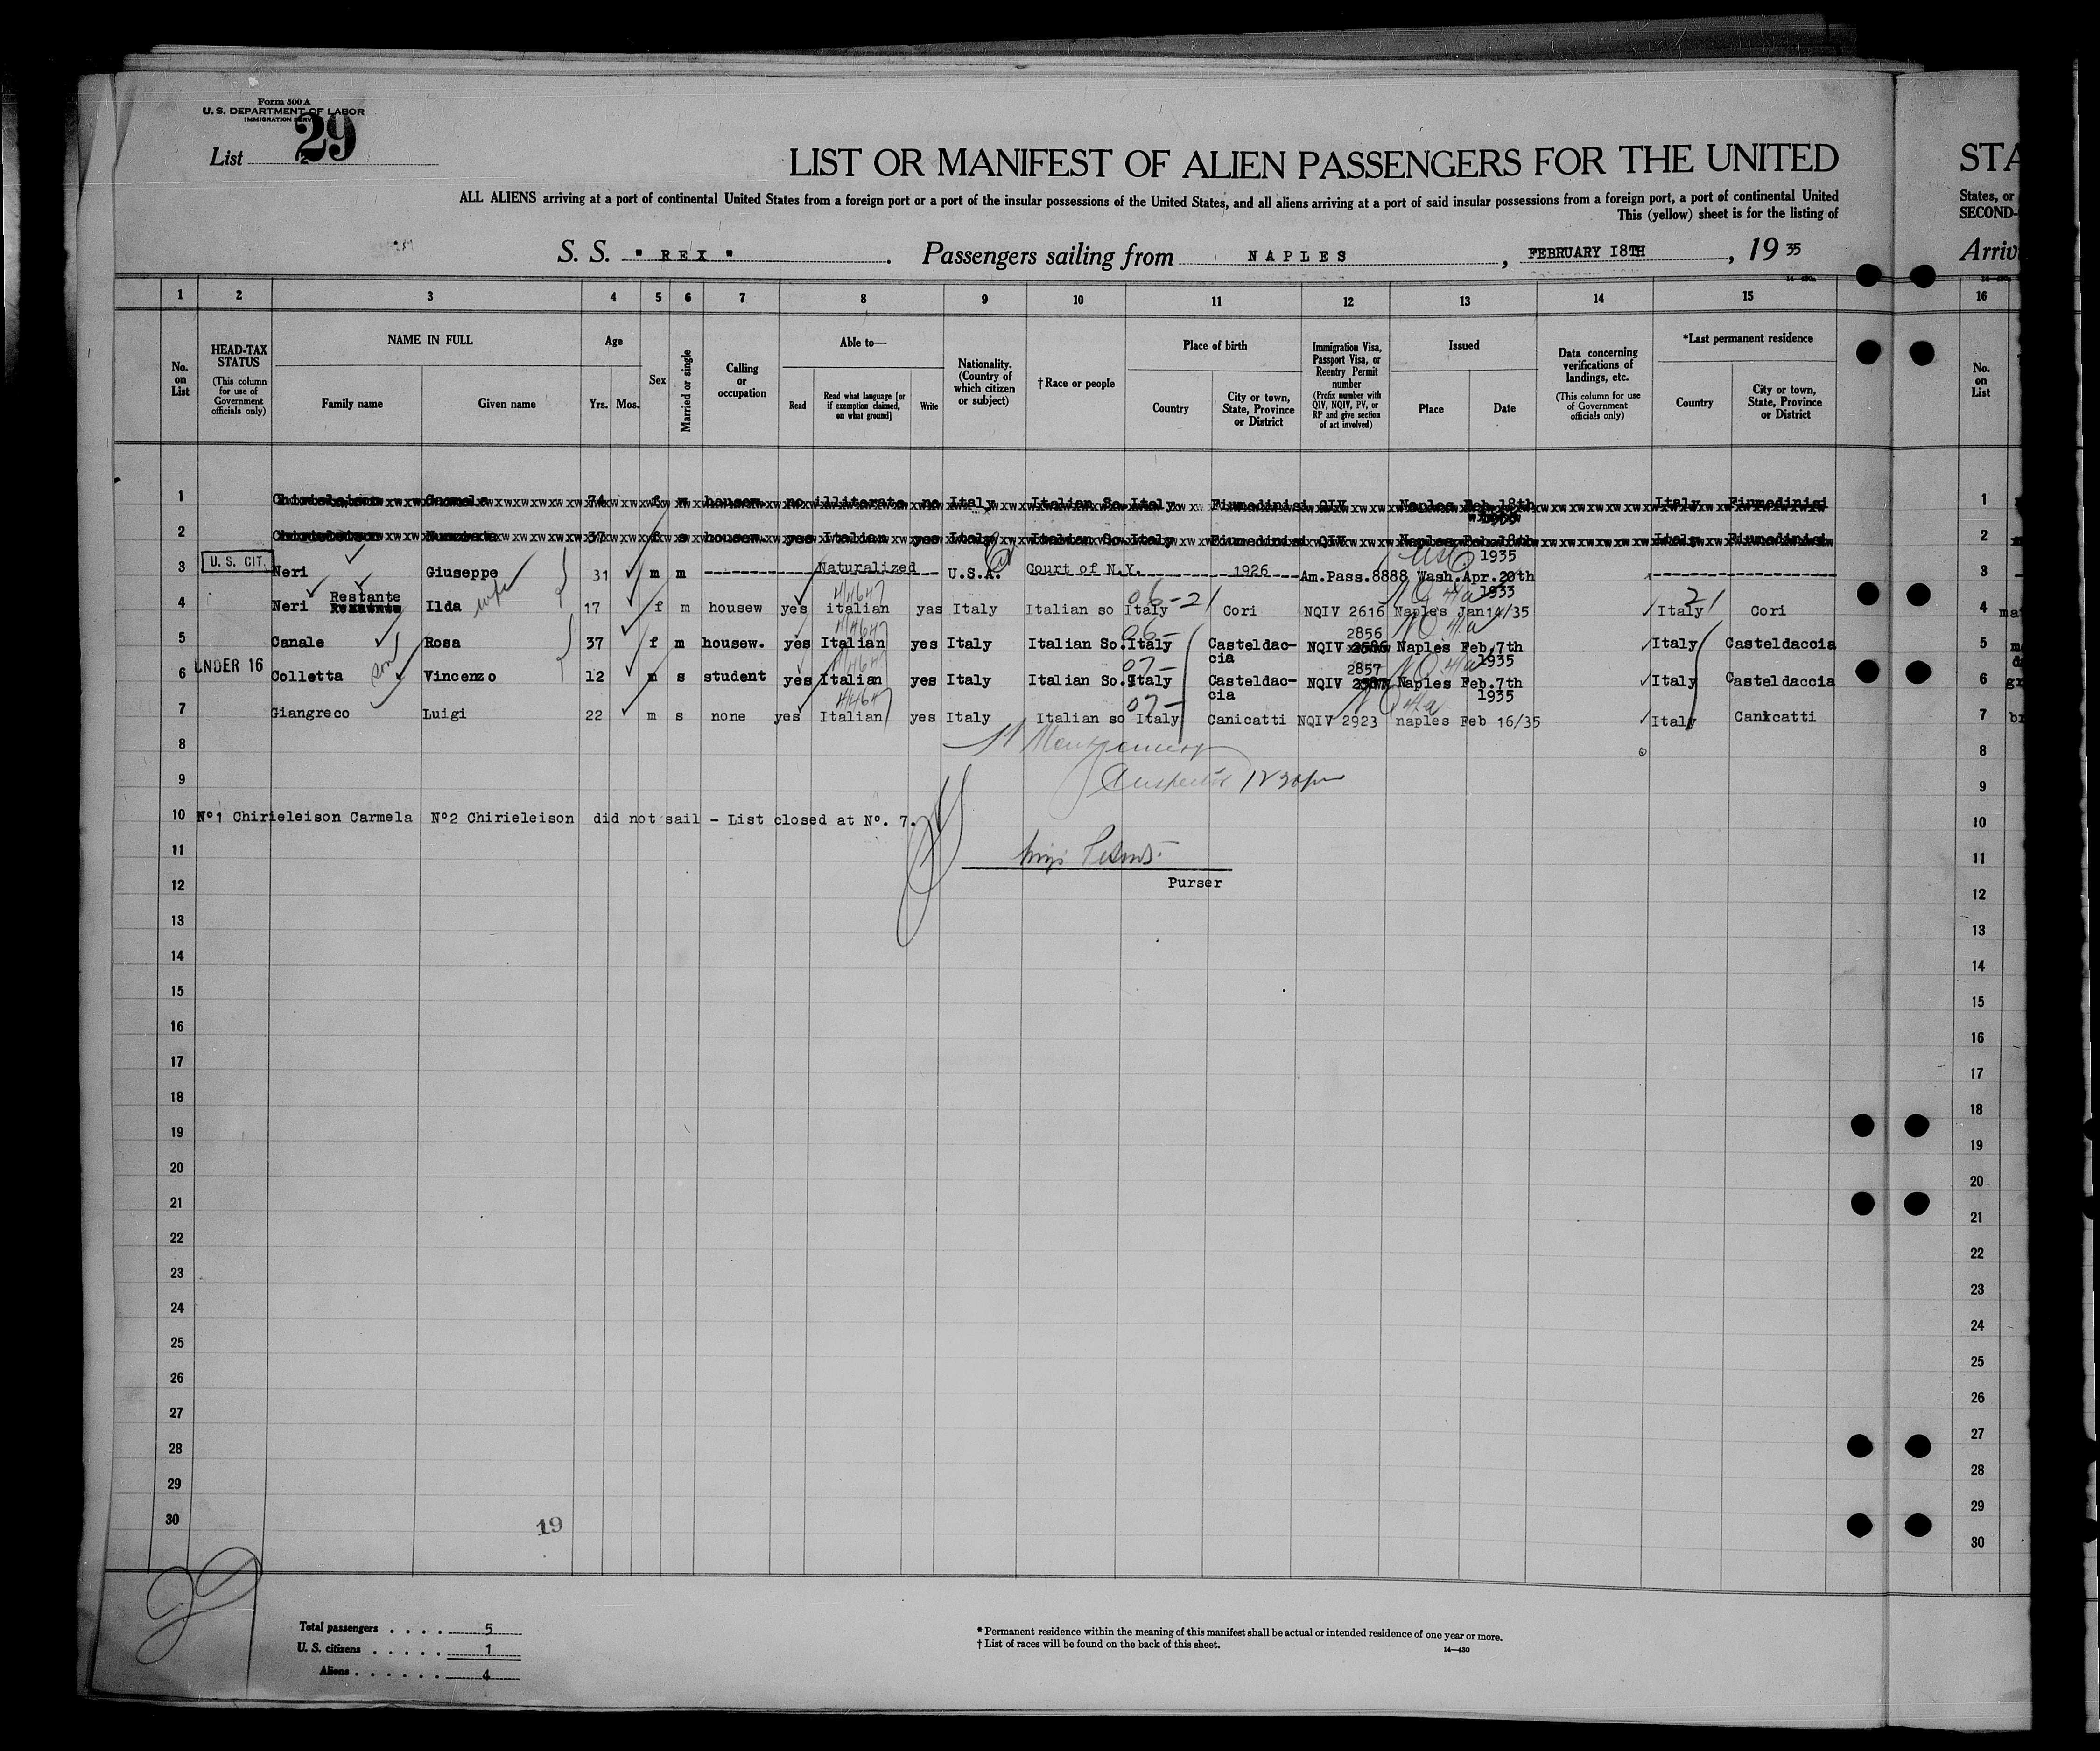 Form 500 A
U. S. DEPARTMENT OF LABOR
IMMIGRATION SERV
List 29
LIST OR MANIFEST OF ALIEN PASSENGERS FOR THE UNITED STA
ALL ALIENS arriving at a port of continental United States from a foreign port or a port of the insular possessions of the United States, and all aliens arriving at a port of said insular possessions from a foreign port, a port of continental United States, or
This (yellow) sheet is for the listing of SECOND-
S. S. " REX " . Passengers sailing from NAPLES , FEBRUARY 18TH , 19 35 Arriv
1 2 3 4 5 6 7 8 9 10 11 12 13 14 15 16
No. on List
HEAD-TAX STATUS
(This column for use of Government officials only)
NAME IN FULL
Family name Given name
Age
Yrs. Mos.
Sex
Married or single
Calling or occupation
Able to—
Read
Read what language [or if exemption claimed, on what ground]
Write
Nationality. (Country of which citizen or subject)
†Race or people
Place of birth
Country
City or town, State, Province or District
Immigration Visa, Passport Visa, or Reentry Permit number
(Prefix number with QIV, NQIV, PV, or RP and give section of act involved)
Issued
Place Date
Data concerning verifications of landings, etc.
(This column for use of Government officials only)
*Last permanent residence
Country
City or town, State, Province or District
No. on List
1 Chirieleison Carmela 74 f w housew. no illiterate no Italy Italian So. Italy Fiumedinisi QIV Naples Feb.18th Italy Fiumedinisi 1
2 Chirieleison Nunziata 37 f s housew. yes Italian yes Italy Italian So. Italy Fiumedinisi QIV Naples Feb.18th Italy Fiumedinisi 2
1935
U. S. CIT.
3 Neri Giuseppe 31 m m Naturalized U.S.A. Court of N.Y. 1926 Am.Pass.8888 Wash.Apr.20th 3
1933
Restante
4 Neri Ilda wife 17 f m housew yes italian yas Italy Italian so Italy 06-21 Cori NQIV 2616 Naples Jan14/35 Italy 21 Cori 4
2856
5 Canale Rosa 37 f m housew. yes Italian yes Italy Italian So. Italy 06- Casteldaccia NQIV Naples Feb.7th 1935 Italy Casteldaccia 5
UNDER 16
2857
6 Colletta son Vincenzo 12 m s student yes Italian yes Italy Italian So. Italy 07- Casteldaccia NQIV Naples Feb.7th 1935 Italy Casteldaccia 6
7 Giangreco Luigi 22 m s none yes Italian yes Italy Italian so Italy 07- Canicatti NQIV 2923 naples Feb 16/35 Italy Canicatti 7
8 8
Montgomery
9 9
Inspector 12 30 pm
10 Nº1 Chirieleison Carmela Nº2 Chirieleison did not sail - List closed at Nº. 7. 10
11 11
12 Purser 12
13 13
14 14
15 15
16 16
17 17
18 18
19 19
20 20
21 21
22 22
23 23
24 24
25 25
26 26
27 27
28 28
29 29
30 30
19
Total passengers . . . . 5
U. S. citizens . . . . . 1
Aliens . . . . . . 4
* Permanent residence within the meaning of this manifest shall be actual or intended residence of one year or more.
† List of races will be found on the back of this sheet.
14—430